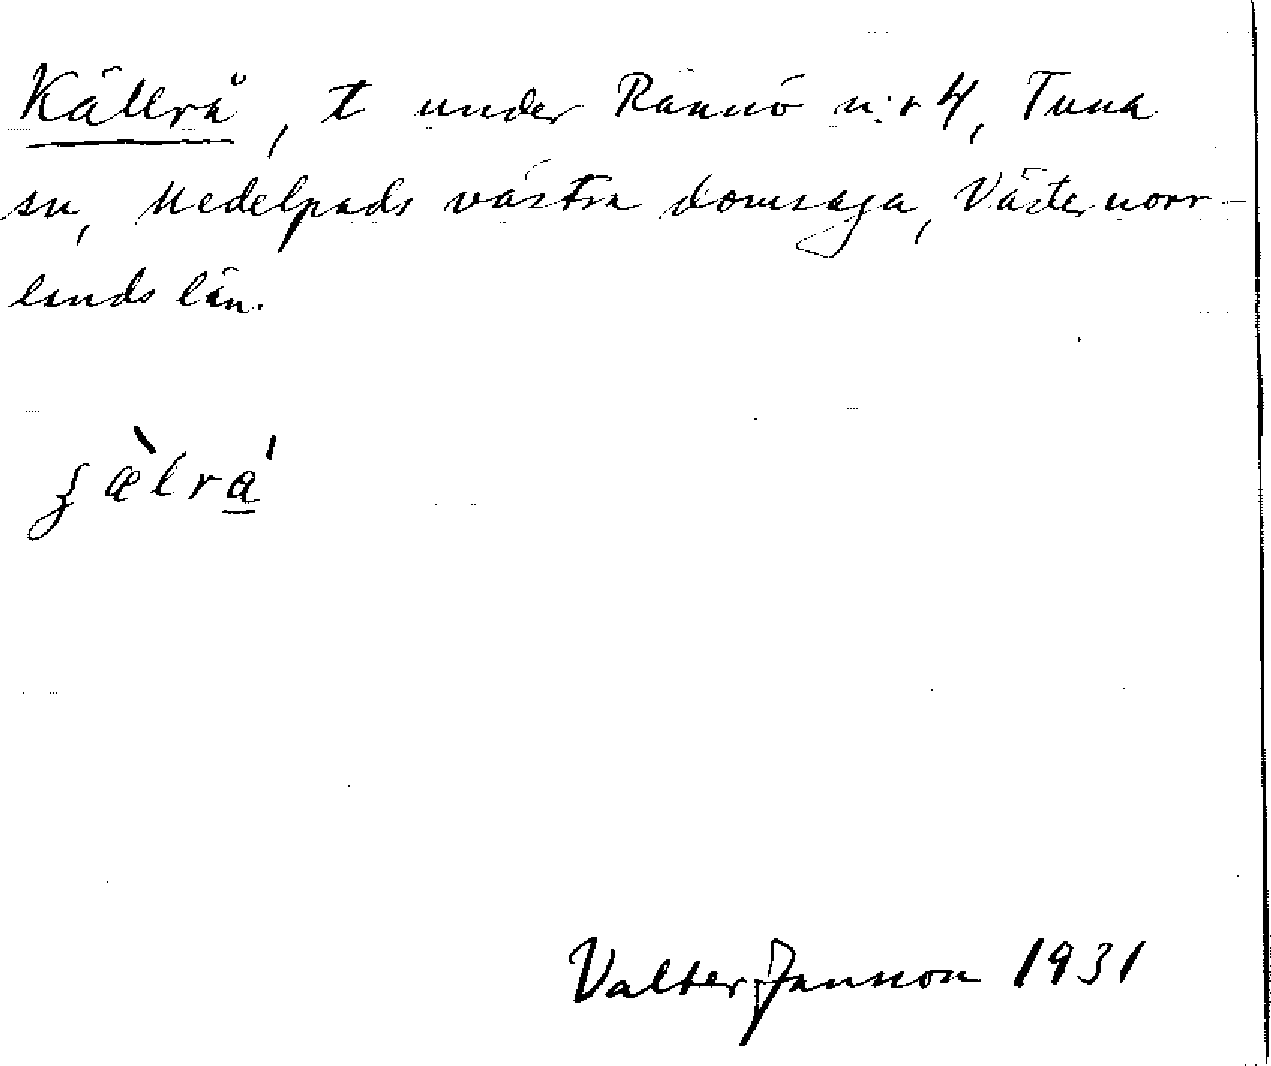 Källrå, t under Rännö n:r 4, Tuna
sn, Medelpads västra domsaga, Västernorr-
lands län.
Valter Jansson 1931